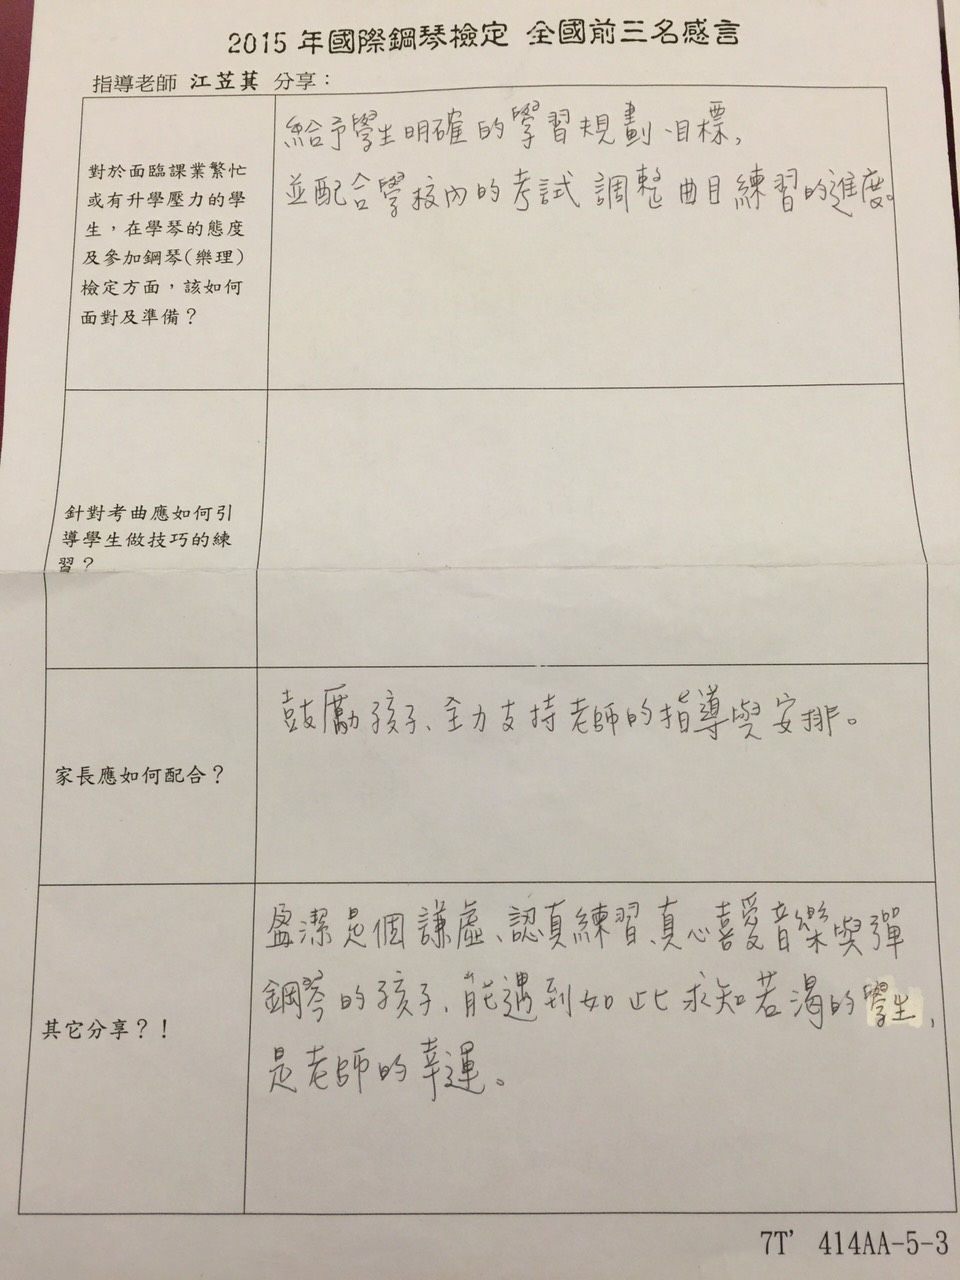 2015年國際鋼琴檢定 全國前三名感言
指導老師 江苙萁 分享：
對於面臨課業繁忙
或有升學壓力的學
生，在學琴的態度
及參加鋼琴(樂理)
檢定方面，該如何
面對及準備？
給予學生明確的學習規劃、目標,
並配合學校內的考試調整曲目練習的進度。
針對考曲應如何引
導學生做技巧的練
習？
家長應如何配合？
鼓勵孩子、全力支持老師的指導與安排。
其它分享？！
盈潔是個謙虛、認真練習、真心喜愛音樂與彈
鋼琴的孩子, 能遇到如此求知若渴的學生,
是老師的幸運。
7T' 414AA-5-3